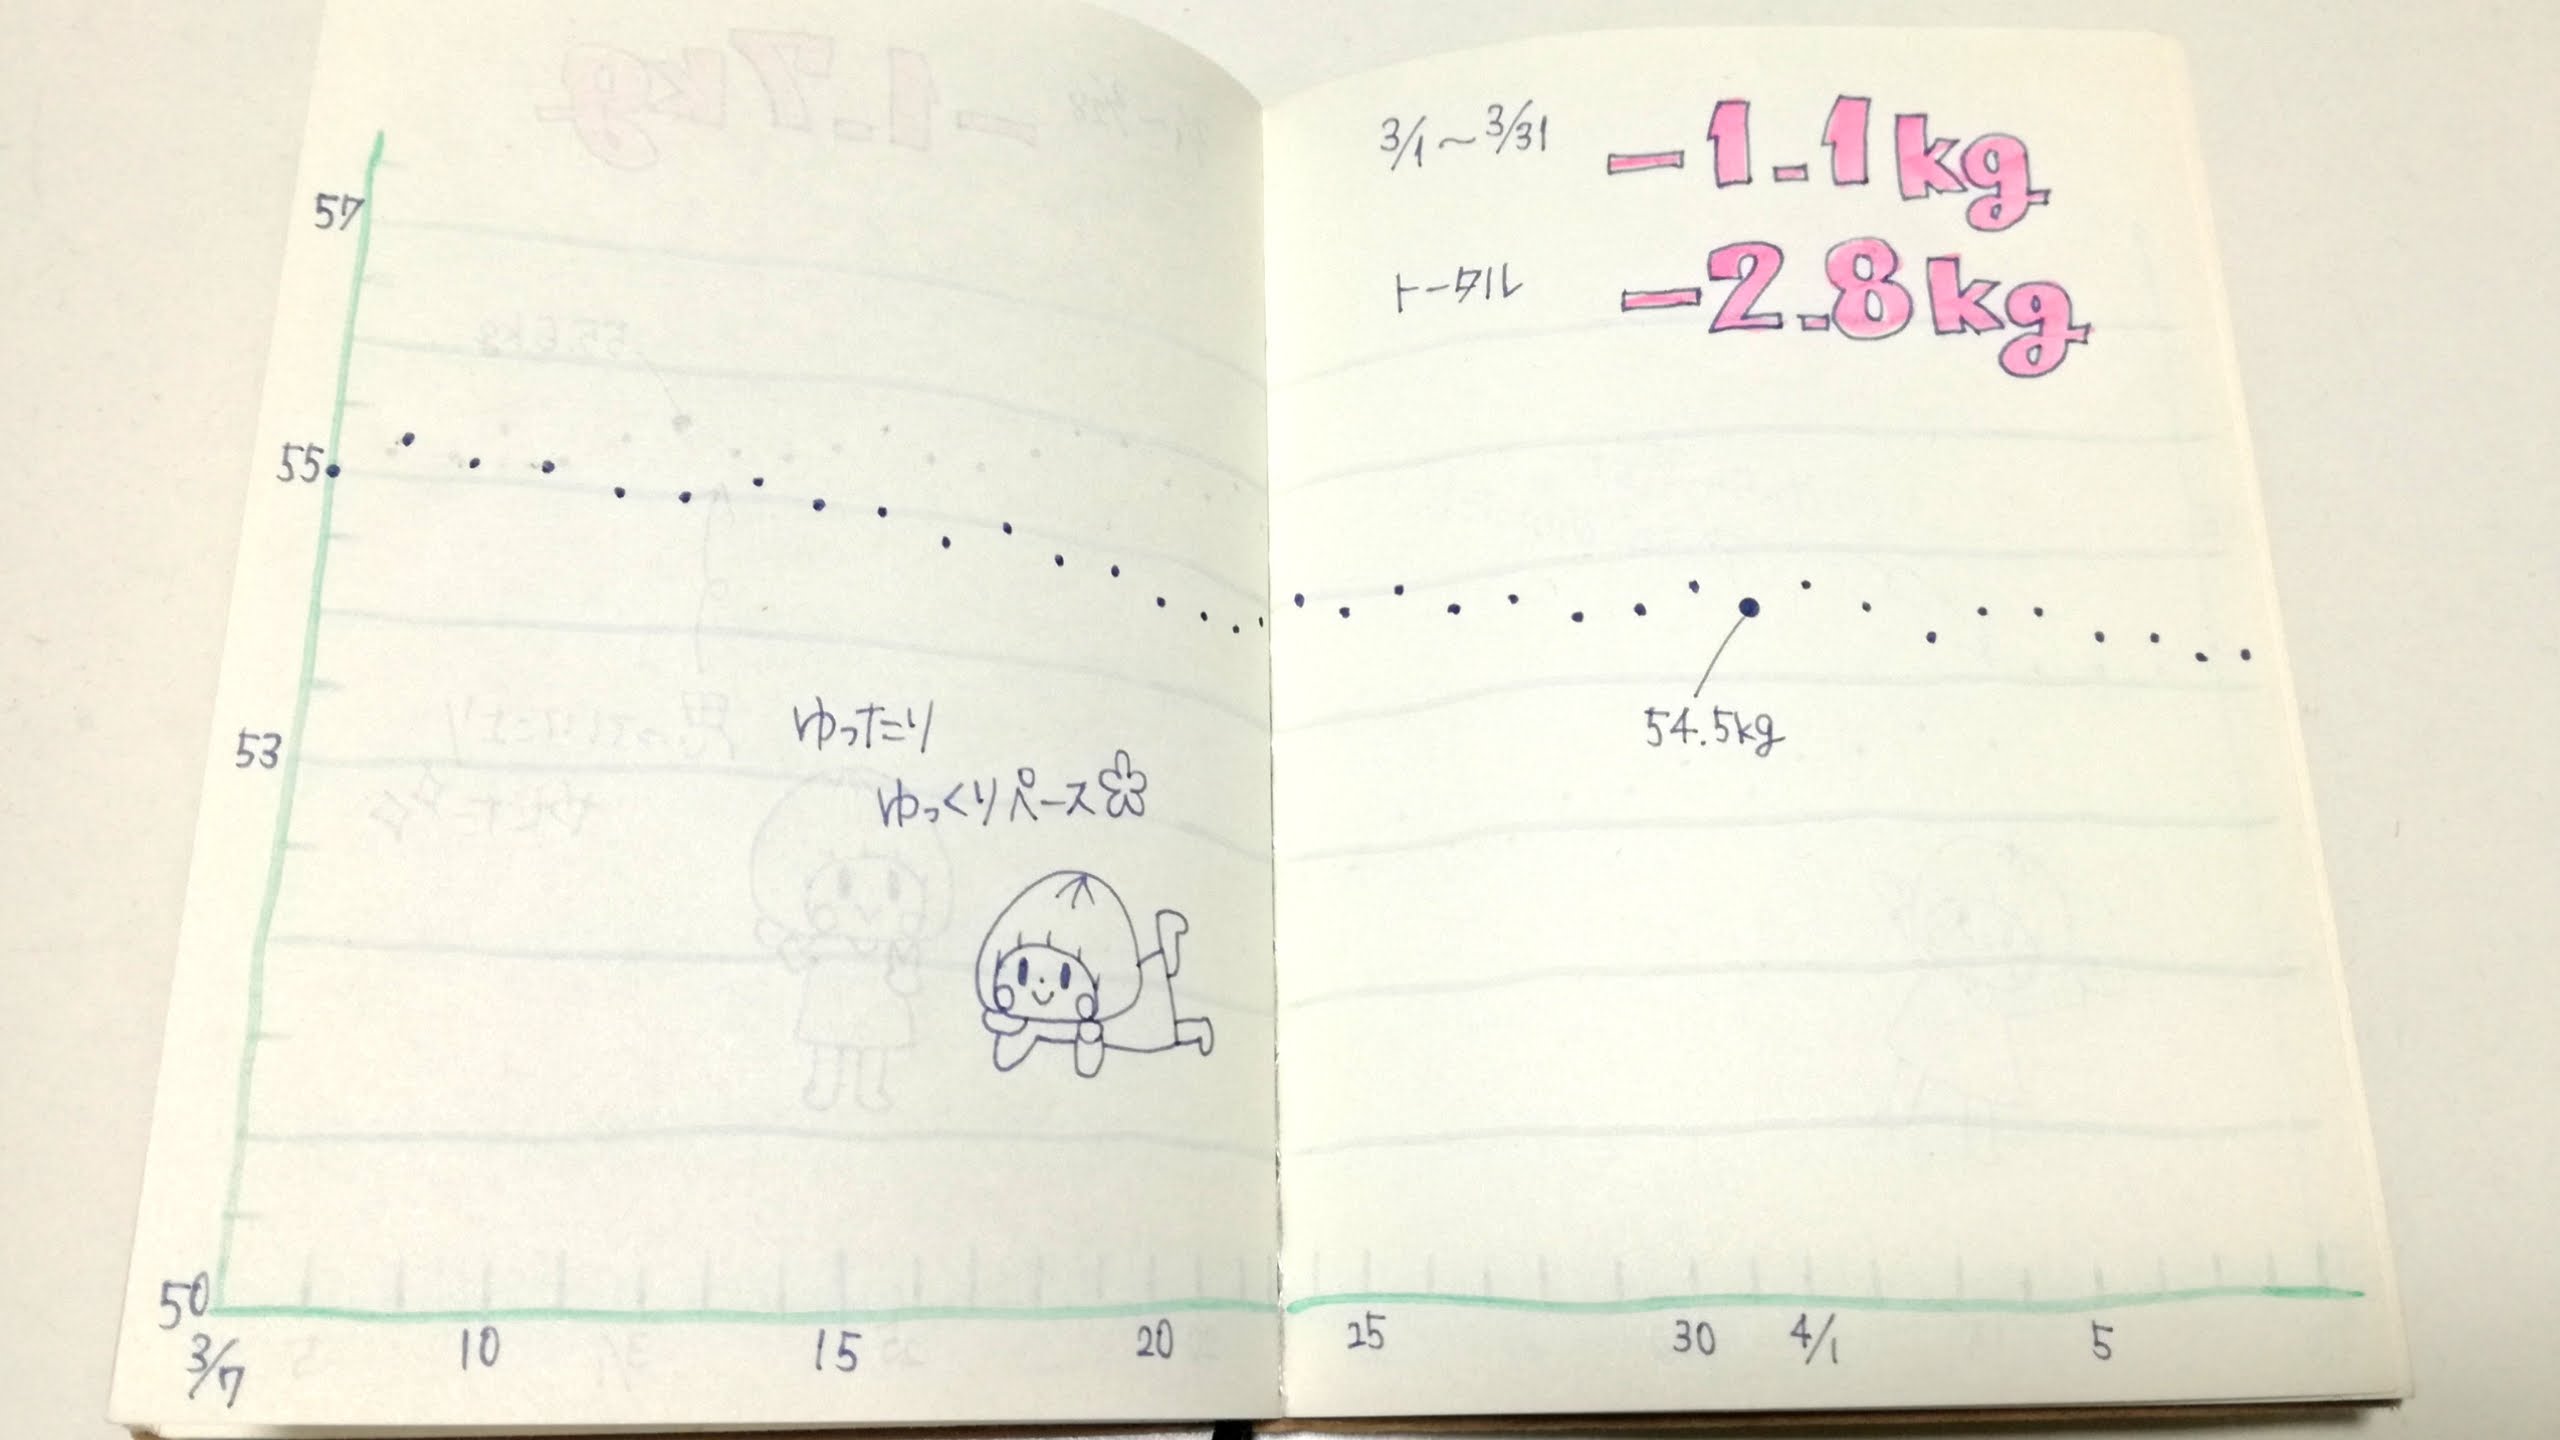 57
55
53
50
3/7
10
15
20
ゆったり
ゆっくりペース
3/1～3/31
-1.1kg
トータル
-2.8kg
54.5kg
25
30
4/1
5